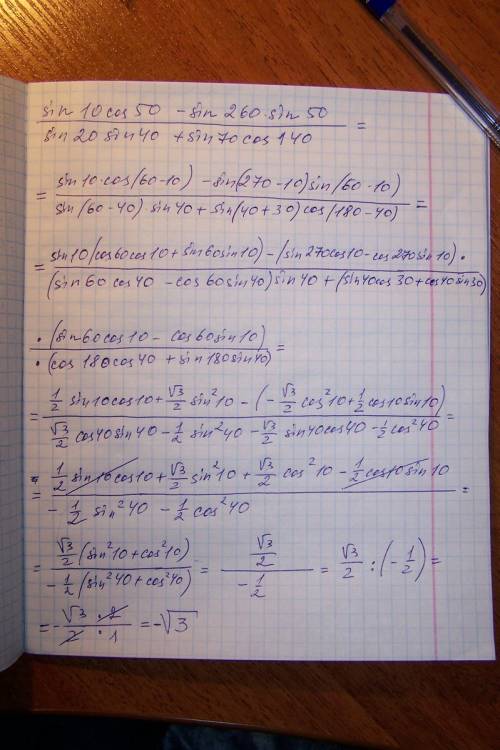 sin 10 cos 50 - sin 260 · sin 50
sin 20 sin 40 + sin 70 cos 140 =
= sin 10 · cos(60-10) - sin(270-10) sin(60-10)
sin(60-40) sin 40 + sin(40+30) cos(180-40) =
= sin 10 (cos 60 cos 10 + sin 60 sin 10) - (sin 270 cos 10 - cos 270 sin 10) ·
(sin 60 cos 40 - cos 60 sin 40) sin 40 + (sin 40 cos 30 + cos 40 sin 30)
· (sin 60 cos 10 - cos 60 sin 10)
· (cos 180 cos 40 + sin 180 sin 40) =
= 1/2 sin 10 cos 10 + √3/2 sin² 10 - (-√3/2 cos² 10 + 1/2 cos 10 sin 10)
√3/2 cos 40 sin 40 - 1/2 sin² 40 - √3/2 sin 40 cos 40 - 1/2 cos² 40 =
= 1/2 sin 10 cos 10 + √3/2 sin² 10 + √3/2 cos² 10 - 1/2 cos 10 sin 10
- 1/2 sin² 40 - 1/2 cos² 40 =
= √3/2 (sin² 10 + cos² 10) / -1/2 (sin² 40 + cos² 40) = √3/2 / -1/2 = √3/2 : (-1/2) =
= - √3 · 2 / 2 · 1 = -√3